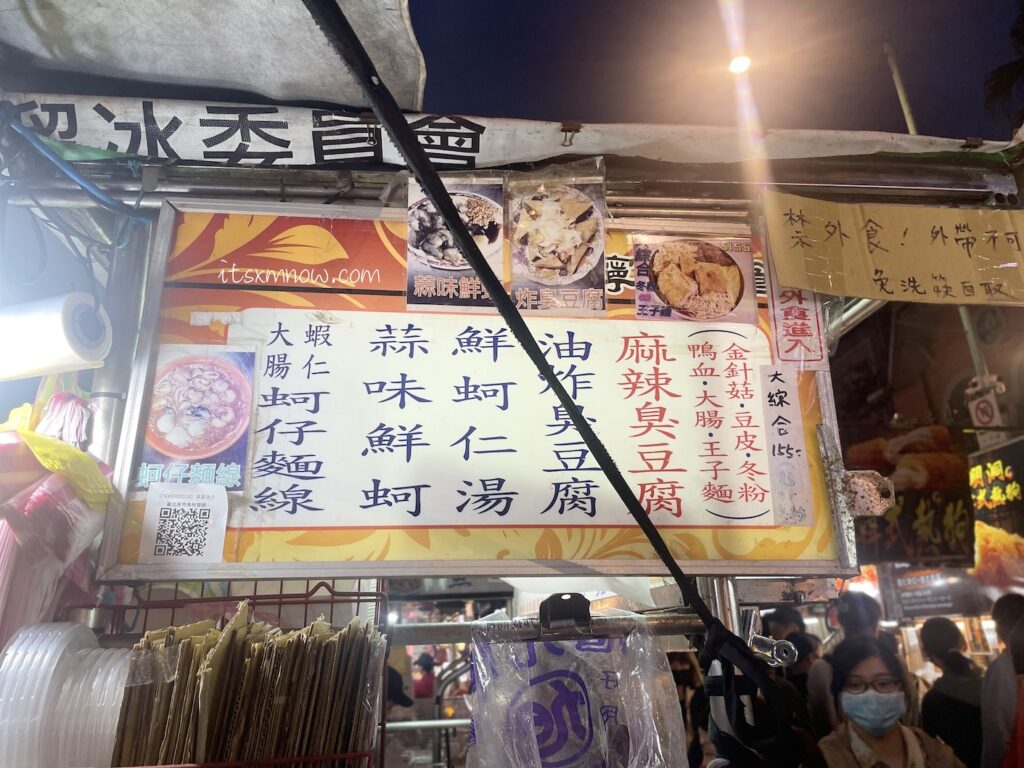 冰委員會
itsxmnow.com
蒜味鮮
炸臭豆腐
綜合
冬粉
王子麵
155
禁外食!外帶不可
免洗筷自取
外食進入
蚵仔麵線
大腸
蝦仁
蚵仔麵線
蒜味鮮蚵
鮮蚵仁湯
油炸臭豆腐
麻辣臭豆腐
(金針菇·豆皮·冬粉
鴨血·大腸·王子麵)
大綜合155-